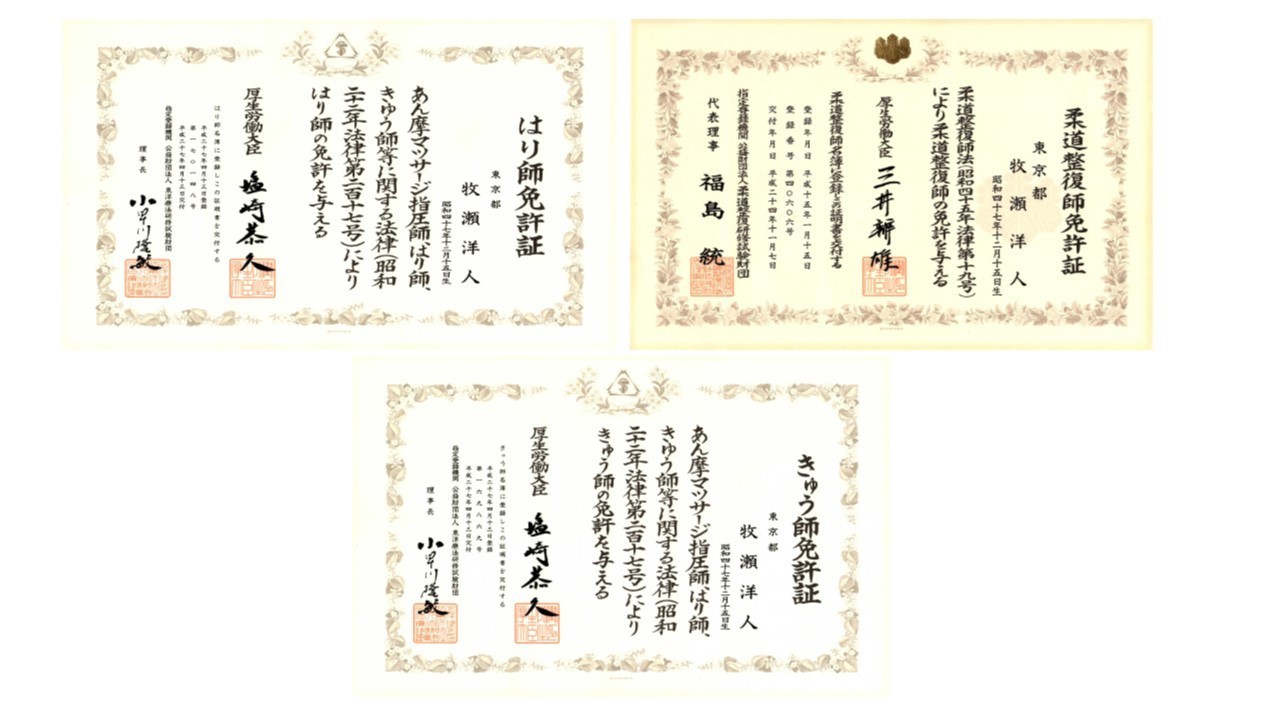 はり師免許証
東京都
牧瀬洋人
昭和四十七年十二月十五日生
あん摩マツサージ指圧師、はり師、
きゆう師等に関する法律(昭和
二十二年法律第二百十七号)により
はり師の免許を与える
厚生労働大臣 塩崎恭久
はり師名簿に登録しこの証明書を交付する
平成二十七年四月十三日登録
第一七〇一四八号
平成二十七年四月十三日交付
指定登録機関 公益財団法人 東洋療法研修試験財団
理事長 小早川隆敏
柔道整復師免許証
東京都
牧瀬洋人
昭和四十七年十二月十五日生
柔道整復師法(昭和四十五年法律第十九号)
により柔道整復師の免許を与える
厚生労働大臣 三井辨雄
柔道整復師名簿に登録しこの証明書を交付する
登録年月日 平成十五年一月十五日
登録番号 第四〇六〇六号
交付年月日 平成二十四年十一月七日
指定登録機関 公益財団法人柔道整復研修試験財団
代表理事 福島統
きゅう師免許証
東京都
牧瀬洋人
昭和四十七年十二月十五日生
あん摩マツサージ指圧師、はり師、
きゆう師等に関する法律(昭和
二十二年法律第二百十七号)により
きゅう師の免許を与える
厚生労働大臣 塩崎恭久
きゅう師名簿に登録しこの証明書を交付する
平成二十七年四月十三日登録
第一六九八六九号
平成二十七年四月十三日交付
指定登録機関 公益財団法人 東洋療法研修試験財団
理事長 小早川隆敏